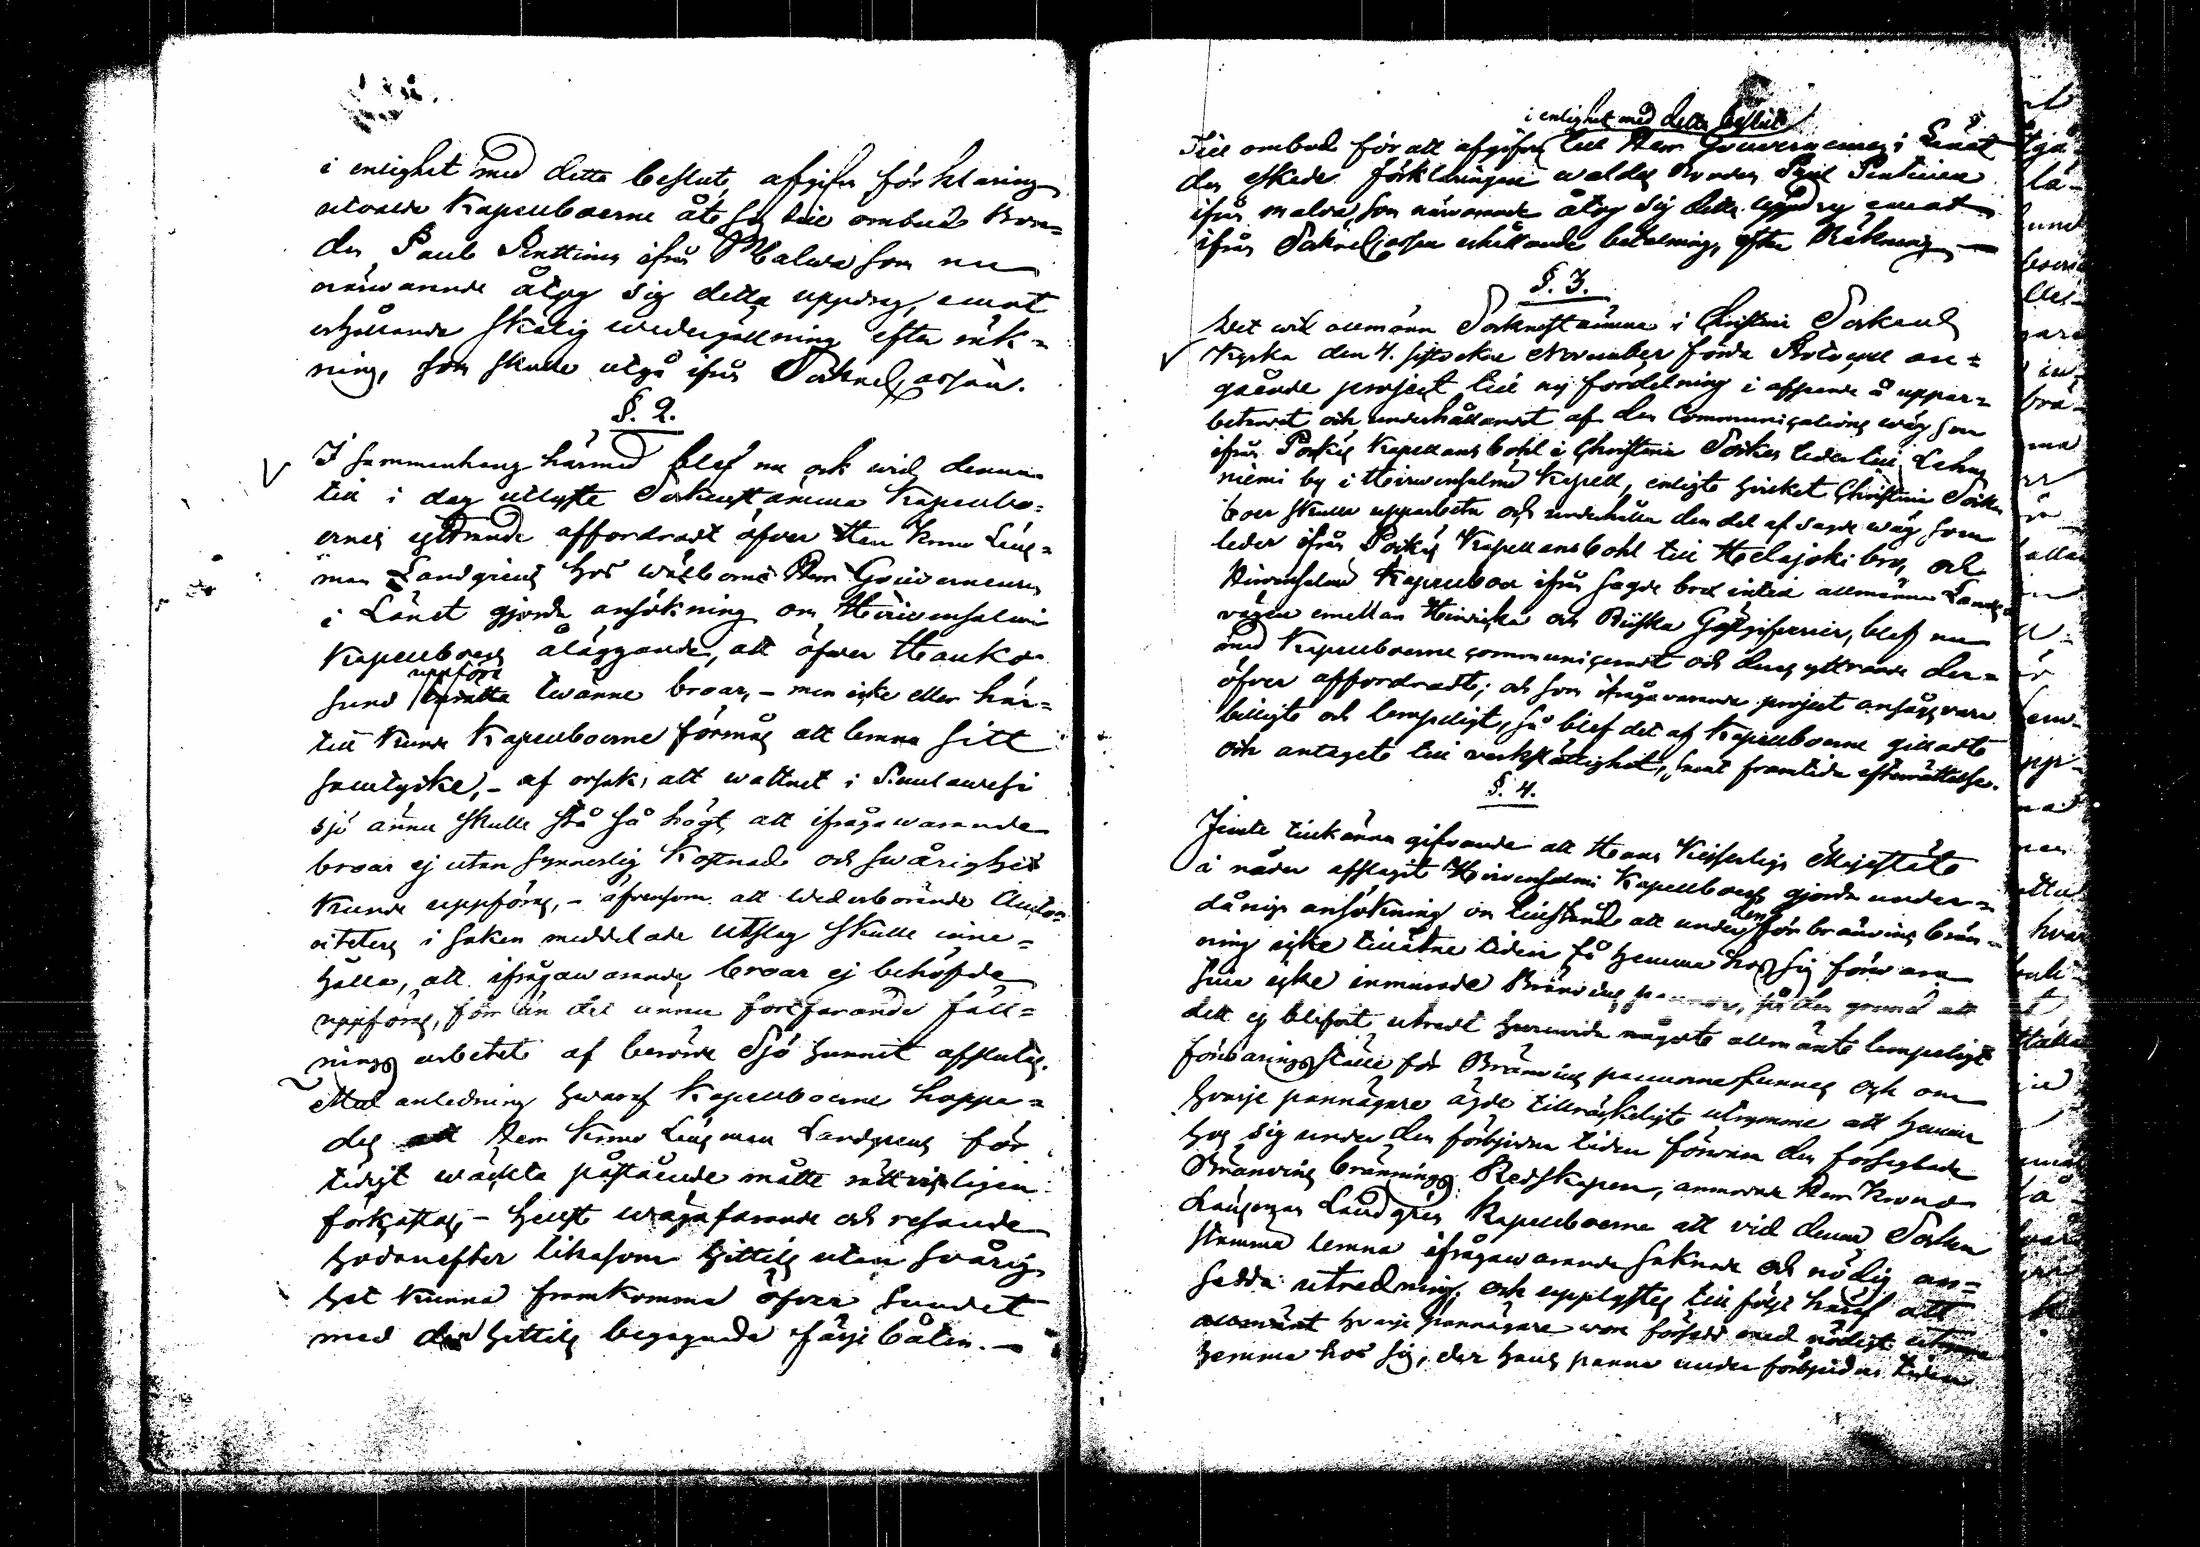 i enlighet med detta beslut, afgifva förklaring
utvalde Kapellboerne åt sig till ombud Bon=
den Paul Penttinen ifrån Malva som nu
närvarande åtog sig detta uppdrag, emot
erhållande skälig wedergällning efter räk=
ning, som skulle utgå ifrån Sockne Cassan.
§. 2.
I sammanhang härmed blef nu ock wid denna
till i dag utlyste Sockenstämma Kapellbo=
ernes yttrande affordradt öfver Herr Krono Läns=
man Landgrens hos wälborne Herr Gouverneuren
i Länet gjorde ansökning om Hirvensalmi
Kapellboers åläggande, att öfver Hanko
sund uppföra twänne broar, – men icke eller här=
till kunde Kapellboerne förmås att lemna sitt
samtycke, – af orsak, att wattnet i
sjö ännu skulle stå så högt, att ifrågawarande
broar ej utan synnerlig kostnad och swårighet
kunde uppföras, – äfvensom att wederbörande Aucto=
riteters i saken meddelade utslag skulle inne=
hålla, att ifrågawarande broar ej behöfde
uppföras, förr än det ännu fortfarande fäll=
nings arbetet af berörde Sjö hunnit afslutas.
Med anledning hwaraf Kapellboerne hoppa=
des att Herr Krono Länsman Landgrens för
tidigt wäckta påstående måtte rättvisligen
förkastas, – helst wägafarande och resande
hädanefter likasom hittils utan swårig
het kunna framkomma öfver sundet
med den hittils begagnade färje båten. –
i enlighet med detta beslut
Till ombud för att afgifva till Herr Gouverneuren i Länet
den skede förklaringen valdes Bonden Paul Penttinen
ifrån Malva, som närvarande åtog sig detta uppdrag emot
ifrån Sockne Cassan erhållande betalning, efter Räkning –
§. 3.
Det wid allmänn Sockenstämma i Christina Sockens
Kyrka den 4. sistvekne November förda Protocoll an=
gående project till ny fördelning i afseende å uppar=
betandet och underhållandet af den Communications wäg som
ifrån Kapellansbohl i Christina Socken leder till
niemi by i Hirvensalmi Kapell, enligt hvilket Christina Socken
boer skulle upparbeta och underhålla den del af sagde wäg som
leder ifrån Kapellansbohl till Helajoki bro, och
Hirvensalmi Kapellboer ifrån sagde bro intill allmänna Lands
vägen emellan och Gästgifverier, blef nu
med Kapellboerne communicerat och deras yttrande der=
öfver affordradt; och som ifrågavarande project ansågs vara
billigt och lempeligt, så blef det af Kapellboerne gilladt
och antaget till verkställighet, samt framtida efterrättelse.
§. 4.
Jemte tillkänna gifvande att Hans Kejserliga Majestät
i nåder afslagit Hirvensalmi Kapellboers gjorde under=
dåniga ansökning om tillstånd att under den för bränvins brän=
ning icke tillåtne tiden få hemma hos sig förvara
sina icke inmurade Bränvins pannor, på den grund att
dett ej blifvit utredt huruvida något allmänt lempeligt
förvaringsställe för Bränvins pannorne funnes och om
hvarje pannägare ägde tillräckeligt utrymme att hemma
hos sig under den förbjudna tiden förvara den förseglade
Bränvins brännings Redskapen, anmodade Herr Krono
Länsman Landgren Kapellboerne att vid denna Socken
stämma lemna ifrågawarande saknade och nödig an=
sedda utredning, och upplystes till följe häraf att
allmänt hvarje pannägare wore försedd med nödigt utrymme
hemma hos sig, der hans panna under förbjudna tiden